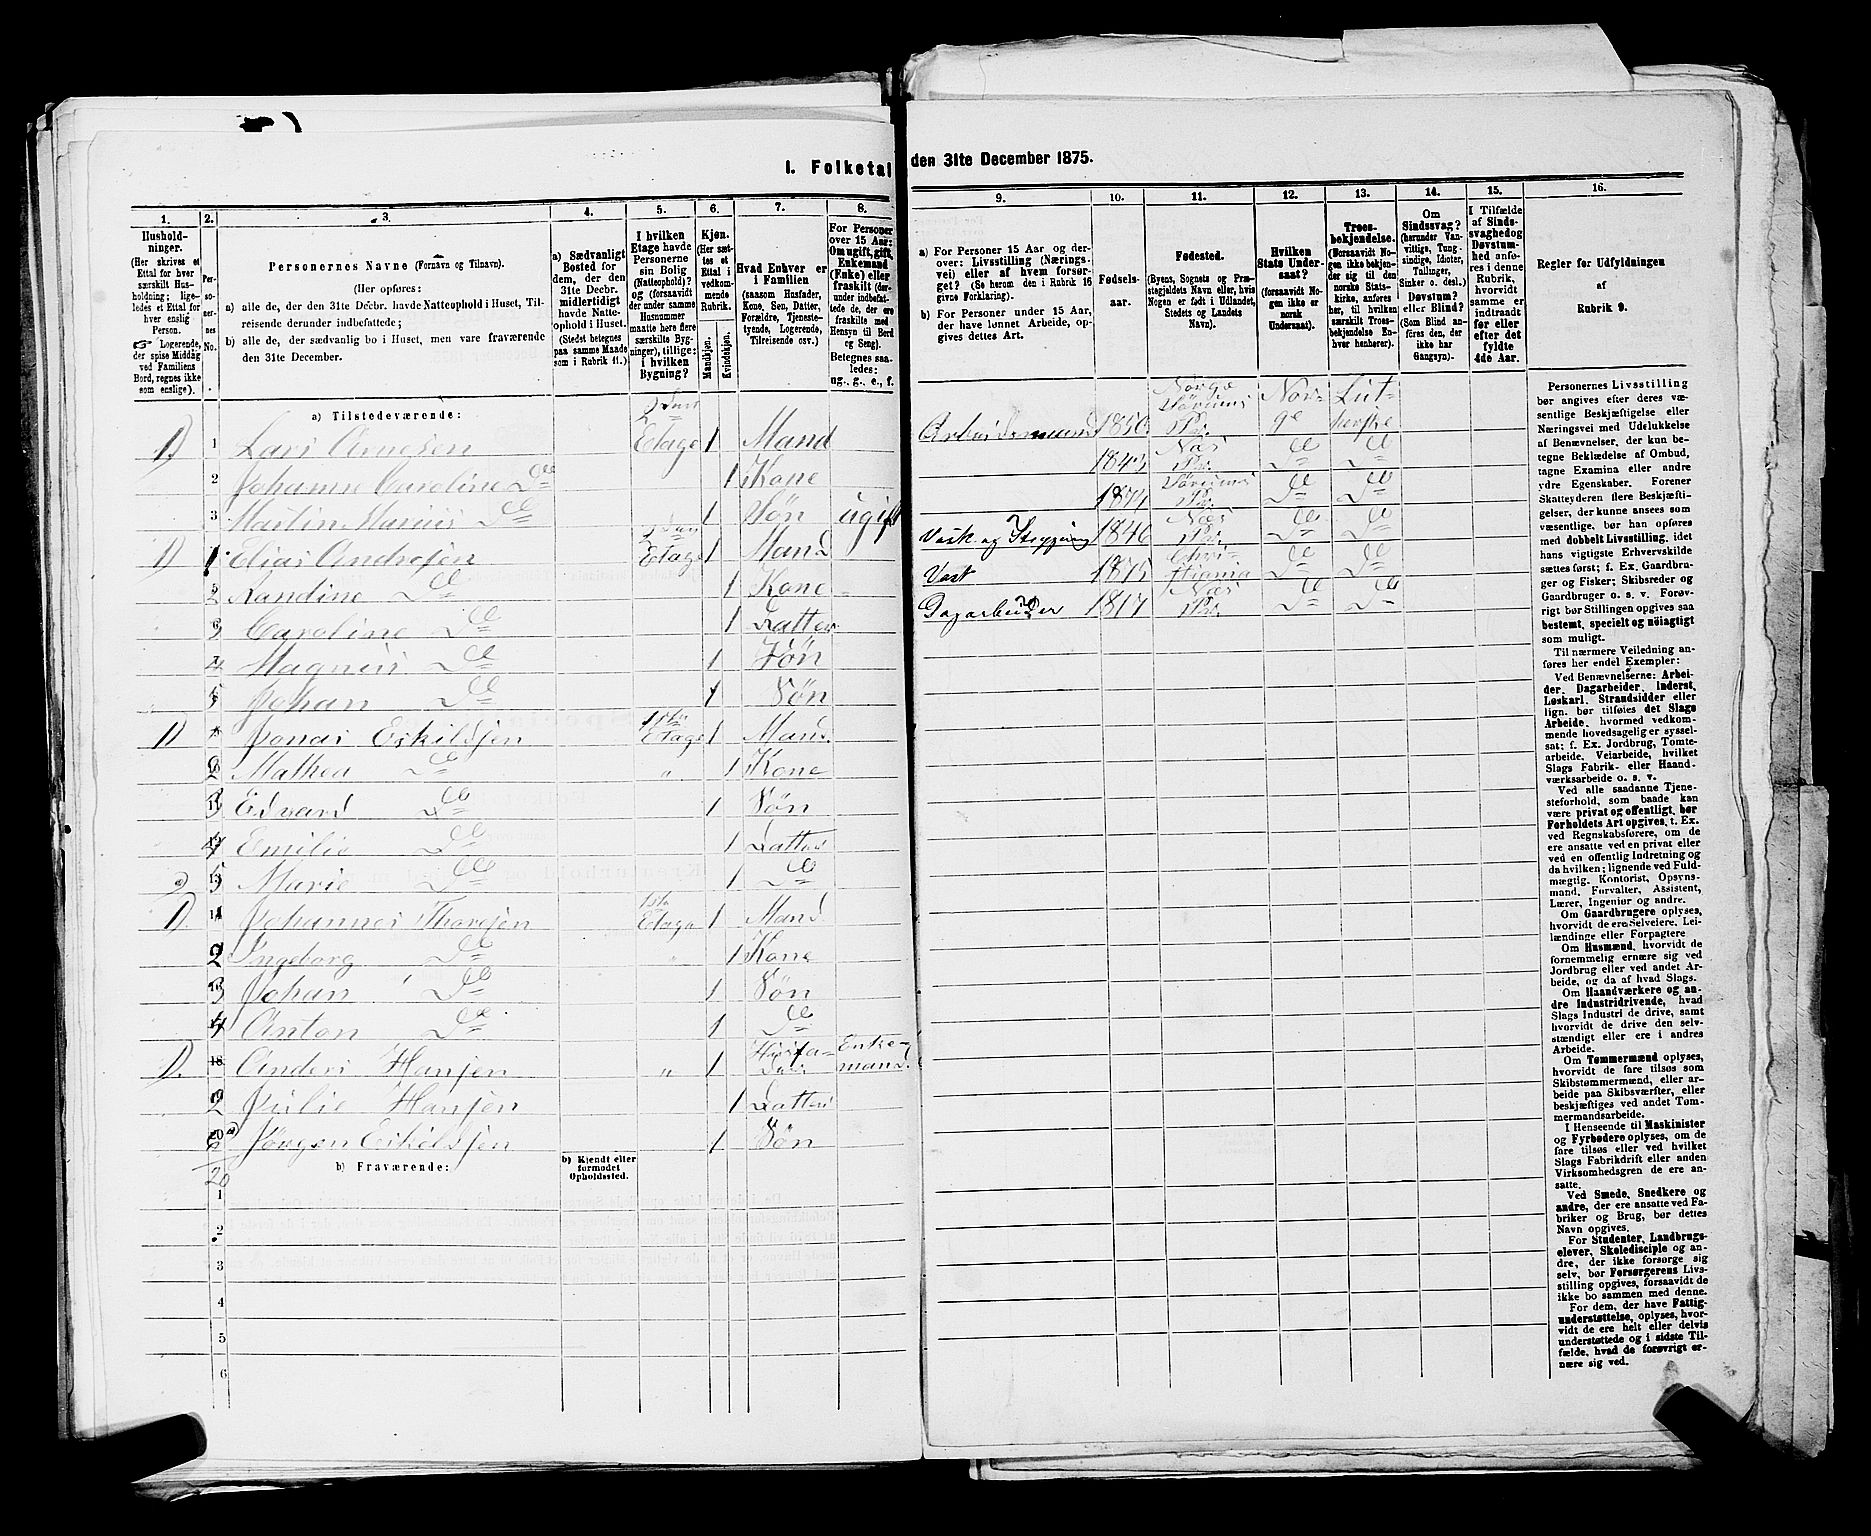 I. Folketal
den 31te December 1875.
1.
2.
3.
4.
5.
6.
7.
8.
Hushold-
ninger.
(Her skrives et
Ettal for hver
særskilt Hus-
holdning; lige-
ledes et Ettal for
hver enslig
Person.
Logerende,
der spise Middag
ved Familiens
Bord, regnes ikke
som enslige).
Per-
so-
ner-
nes
No.
Personernes Navne (Fornavn og Tilnavn).
(Her opføres:
a) alle de, der den 31te Decbr. havde Natteophold i Huset, Til-
reisende derunder indbefattede;
b) alle de, der sædvanlig bo i Huset, men vare fraværende
den 31te December.
a) Sædvanligt
Bosted for
dem, der den
31te Decbr.
midlertidigt
havde Natte-
ophold i Huset.
(Stedet betegnes
paa samme Maade
som i Rubrik 11.)
I hvilken
Etage havde
Personerne
sin Bolig
(Natteophold)?
og (forsaavidt
der under samme
Husnummer
maatte høre flere
særskilte Byg-
ninger), tillige:
i hvilken
Bygning?
Kjøn.
(Her sæt-
tes et
Ettal i
vedkom-
mende
Rubrik.
Mandkjøn.
Kvindekjøn.
Hvad Enhver er
i Familien
(saasom Husfader,
Kone, Søn, Datter,
Forældre, Tjeneste-
tyende, Logerende,
Tilreisende osv.)
For Personer
over 15 Aar:
Om ugift, gift,
Enkemand
(Enke) eller
fraskilt (der-
under indbefat-
tede de, der ere
fraskilte med
Hensyn til Bord
og Seng).
Betegnes saa-
ledes:
ug., g., e., f.
a) Tilstedeværende:
1) 1 Lars Arnesen 2den Etage 1 Mand
2 Johanne Caroline Do 1 Kone
3 Martin Marius Do 1 Søn ugift
1) 1 Elias Andresen 2den Etage 1 Mand
2 Randine Do 1 Kone
3 Caroline Do 1 Datter
4 Magnus Do 1 Søn
5 Johan Do 1 Søn
1) Jonas Eskildsen 1ste Etage 1 Mand
2 Mathea Do " 1 Kone
3 Edvard Do 1 Søn
4 Emilie Do 1 Datter
2 5 Marie Do 1 Do
1) 14 Johannes Thoresen 1ste Etage 1 Mand
2 Ingeborg Do " 1 Kone
3 Johan Do 1 Søn
4 Anton Do 1 Do
1) 18 Anders Hansen " 1 Enkemand
2 Julie Hansen 1 Datter
20 Jørgen Eskildsen 1 Søn
20
b) Fraværende:
b) Kjendt eller
formodet
Opholdssted.
1
2
3
4
5
6
9.
10.
11.
12.
13.
14.
15.
16.
a) For Personer 15 Aar og der-
over: Livsstilling (Nærings-
vei) eller af hvem forsør-
get? (Se herom den i Rubrik 16
givne Forklaring).
b) For Personer under 15 Aar,
der have lønnet Arbeide, op-
gives dettes Art.
Fødsels-
aar.
Fødested.
(Byens, Sognets og Præ-
stegjeldets Navn eller, hvis
Nogen er født i Udlandet,
Stedets og Landets
Navn).
Hvilken
Stats Under-
saat?
(forsaavidt No-
gen ikke er
norsk
Undersaat).
Troes-
bekjendelse.
(Forsaavidt No-
gen ikke bekjen-
der sig til den
norske Stats-
kirke, anføres
her, til hvilken
særskilt Troes-
bekjendelse En-
hver henhører).
Om
Sindssvag?
(herunder Van-
vittige, Tung-
sindige, Idioter,
Tullinger,
Sinker o. desl.)
Døvstum?
eller Blind?
(Som Blind an-
føres den, der
ikke har
Gangsyn).
I Tilfælde
af Sinds-
svaghed og
Døvstum-
hed anfø-
res i denne
Rubrik,
hvorvidt
samme er
indtraadt
før eller
efter det
fyldte
4de Aar.
Regler for Udfyldningen
af
Rubrik 9.
Arbeidsmand 1850 Norge Sørums Pr. Norge Lutherske
Næs Pr. Do Do
1874 Sørums Pr. Do Do
Vask og Strygning 1846 Næs Pr. Do Do
Vask 1875 Christiania Do Do
Dagarbeider 1817 Næs Pr. Do Do
Personernes Livsstilling
bør angives efter deres væ-
sentlige Beskjæftigelse eller
Næringsvei med Udelukkelse
af Benævnelser, der kun be-
tegne Beklædelse af Ombud,
tagne Examina eller andre
ydre Egenskaber. Forener
Skatteyderen flere Beskjæfti-
gelser, der kunne ansees som
væsentlige, bør han opføres
med dobbelt Livsstilling, idet
hans vigtigste Erhvervskilde
sættes først; f. Ex. Gaardbru-
ger og Fisker; Skibsreder og
Gaardbruger o. s. v. Forøv-
rigt bør Stillingen opgives saa
bestemt, specielt og nøiagtigt
som muligt.
Til nærmere Veiledning an-
føres her endel Exempler:
Ved Benævnelserne: Arbei-
der, Dagarbeider, Inderst,
Løskarl, Strandsidder eller
lign. bør tilføies det Slags
Arbeide, hvormed vedkom-
mende hovedsagelig er syssel-
sat; f. Ex. Jordbrug, Tomte-
arbeide, Veiarbeide, hvilket
Slags Fabrik- eller Haand-
værksarbeide o. s. v.
Ved alle saadanne Tjene-
steforhold, som baade kan
være privat og offentligt, bør
Forholdets Art opgives, t. Ex.
ved Regnskabsførere, om de
ere ansatte ved en privat eller
ved en offentlig Indretning og
da hvilken; lignende ved Fuld-
mægtig, Kontorist, Opsyns-
mand, Forvalter, Assistent,
Lærer, Ingeniør og andre.
Om Gaardbrugere oplyses,
hvorvidt de ere Selveiere, Lei-
lændinge eller Forpagtere
Om Husmænd, hvorvidt de
fornemmelig ernære sig ved
Jordbrug eller ved andet Ar-
beide, og da af hvad Slags.
Om Haandværkere og an-
dre Industridrivende, hvad
Slags Industri de drive, samt
hvorvidt de drive den selv-
stændigt eller ere i andres
Arbeide.
Om Tømmermænd oplyses,
hvorvidt de fare tilsøs som
Skibstømmermænd, eller ar-
beide paa Skibsværfter, eller
beskjæftiges ved andet Tøm-
mermandsarbeide.
I Henseende til Maskinister
og Fyrbødere oplyses, om de
fare tilsøs eller ved hvilket
Slags Fabrikdrift eller anden
Virksomhedsgren de ere an-
satte.
Ved Smede, Snedkere og
andre, der ere ansatte ved Fa-
briker og Brug, bør dettes
Navn opgives.
For Studenter, Landbrugs-
elever, Skoledisciple og an-
dre, der ikke forsørge sig
selv, bør Forsørgerens Livs-
stilling opgives, forsaavidt de
ikke bo sammen med denne.
For dem, der have Fattig-
understøttelse, oplyses, hvor-
vidt de ere helt eller delvis
understøttede og i sidste Til-
fælde, hvad de forøvrigt er-
nære sig ved.